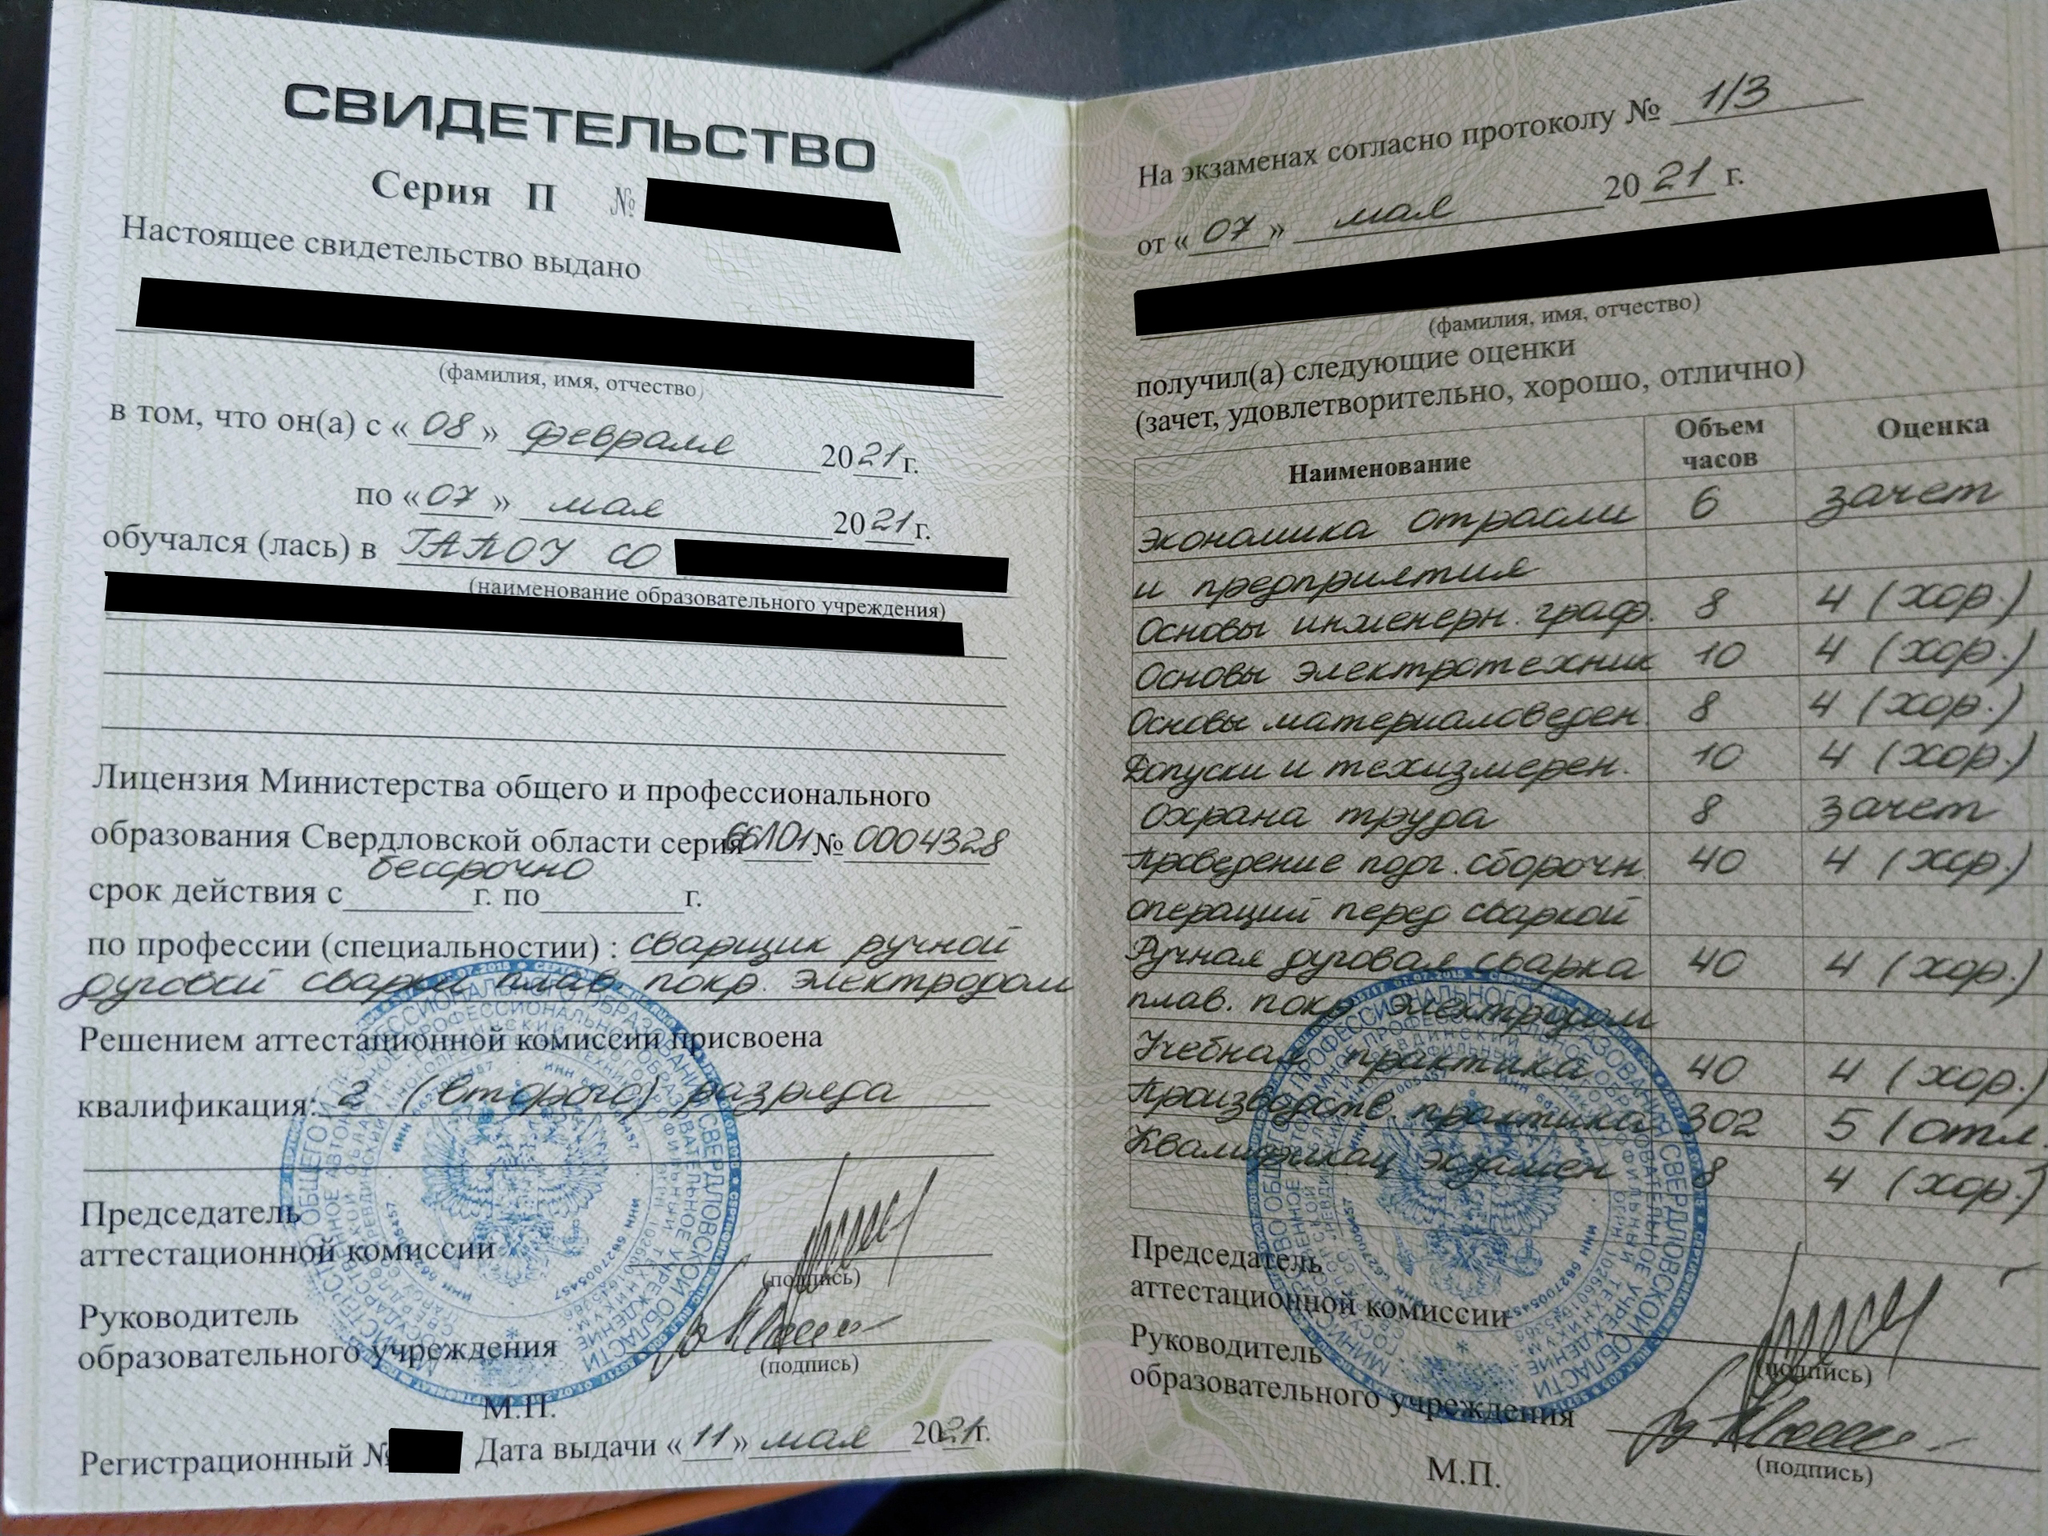 СВИДЕТЕЛЬСТВО
Серия П №
Настоящее свидетельство выдано
(фамилия, имя, отчество)
в том, что он(а) с «08» февраля 2021г.
по «07» мая 2021г.
обучался (лась) в ГАПОУ СО
(наименование образовательного учреждения)
Лицензия Министерства общего и профессионального
образования Свердловской области серия 66Л01 № 0004328
бессрочно
срок действия с г. по г.
по профессии (специальностии) : сварщик ручной
дуговой сварки плав. покр. электродом
Решением аттестационной комиссии присвоена
квалификация: 2 (второго) разряда
Председатель
аттестационной комиссии
(подпись)
Руководитель
образовательного учреждения
(подпись)
М.П.
Регистрационный № Дата выдачи «11» мая 2021г.
На экзаменах согласно протоколу № 1/3
от «07» мая 2021 г.
(фамилия, имя, отчество)
получил(а) следующие оценки
(зачет, удовлетворительно, хорошо, отлично)
Наименование Объем часов Оценка
Экономика отрасли 6 зачет
и предприятия
Основы инженерн. граф. 8 4 (хор.)
Основы электротехник 10 4 (хор.)
Основы материаловеден. 8 4 (хор.)
Допуски и техизмерен. 10 4 (хор.)
Охрана труда 8 зачет
Проведение подг. сборочн 40 4 (хор.)
операций перед сваркой
Ручная дуговая сварка 40 4 (хор.)
плав. покр. электродом
Учебная практика 40 4 (хор.)
Производств. практика 302 5 (отл.
Квалификац экзамен 8 4 (хор.)
Председатель
аттестационной комиссии
(подпись)
Руководитель
образовательного учреждения
(подпись)
М.П.